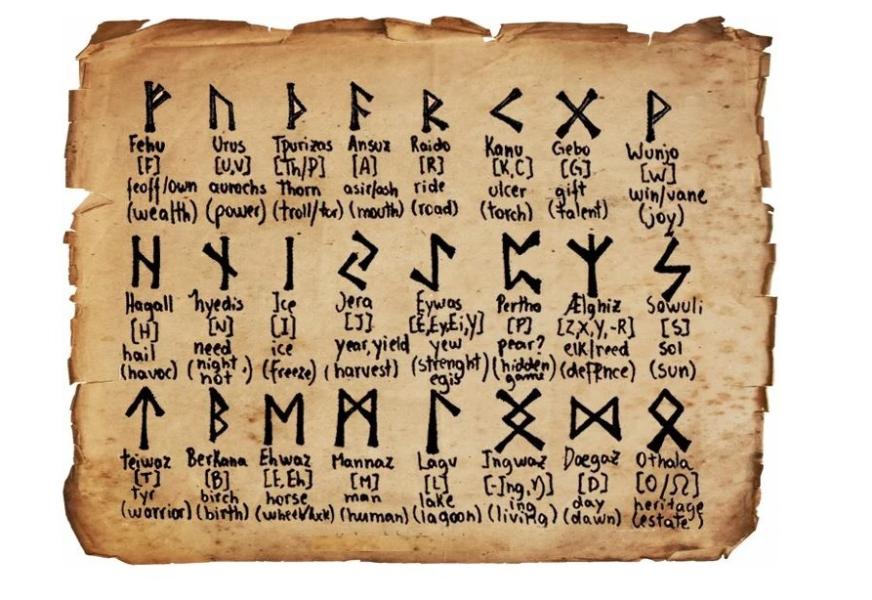 ᚠ ᚢ ᚦ ᚨ ᚱ ᚲ ᚷ ᚹ
Fehu Urus Tpurizas Ansuz Raido Kanu Gebo Wunjo
[F] [U,V] [Th/P] [A] [R] [K,C] [G] [W]
feoff/own aurochs thorn asir/ash ride ulcer gift win/vane
(wealth) (power) (troll/tor) (mouth) (road) (torch) (talent) (joy)
ᚺ ᚾ ᛁ ᛃ ᛇ ᛈ ᛉ ᛋ
Hagall hyedis Ice Jera Eywas Pertho Ælghiz Sowuli
[H] [N] [I] [J] [E,Ey,Ei,Y] [P] [Z,X,Y,-R] [S]
hail need ice year,yield yew pear? elk/reed sol
(havoc) (night, not) (freeze) (harvest) (strenght egis) (hidden game) (deffence) (sun)
ᛏ ᛒ ᛖ ᛗ ᛚ ᛝ ᛞ ᛟ
teiwaz Berkana Ehwaz Mannaz Lagu Ingwaz Daegaz Othala
[T] [B] [E,Eh] [M] [L] [-Ing,Y)] [D] [O/Ω]
tyr birch horse man lake ing day heritage
(warrior) (birth) (human) (lagoon) (living) (dawn) (estate)